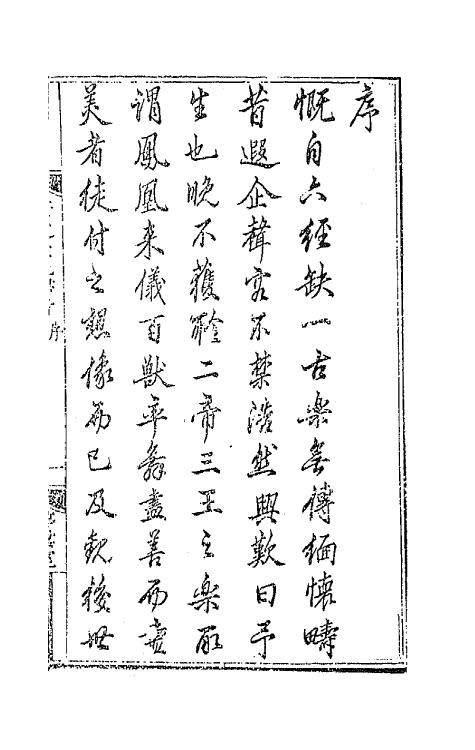 序
慨自六經缺一古樂無傳緬懷疇
昔遐企聲容不禁漼然興歎曰予
生也晚不獲聆二帝三王之樂所
謂鳳凰来儀百獸率舞盡善而盡
美者徒付之想像而已及観後世
序